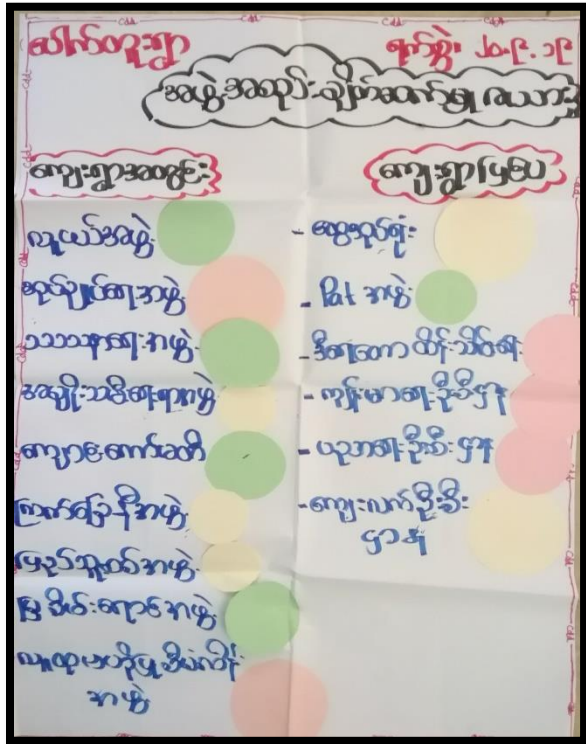 ရက်စွဲ၊
အဖွဲ့အစည်းချိတ်ဆက်မှု ဇယား
ကျေးရွာအတွင်း
ကျေးရွာပြင်ပ
လူငယ်အဖွဲ့
အုပ်ချုပ်ရေးအဖွဲ့
သာသနာရေးအဖွဲ့
အမျိုးသမီးရေးရာအဖွဲ့
ကျောင်းကော်မတီ
ကြက်ခြေနီအဖွဲ့
ပြည်သူ့စစ်အဖွဲ့
မြစိမ်းရောင်အဖွဲ့
လူထုဗဟိုပြုစီမံကိန်း
အဖွဲ့
- ထွေအုပ်ရုံး
- Pat အဖွဲ့
- ဒီရေတောထိန်းသိမ်းရေး
- ကျန်းမာရေးဦးစီးဌာန
- ပညာရေးဦးစီးဌာန
- ကျေးလက်ဦးစီး
ဌာန